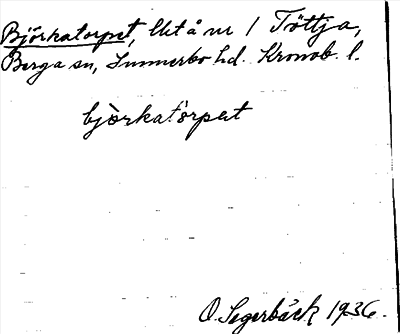 Björkatorpet, Utå nr 1 Töttja,
Berga sn, Sunnerbo hd. Kronob. l.
bjòrkatòrpet
O. Segerbäck 1936.